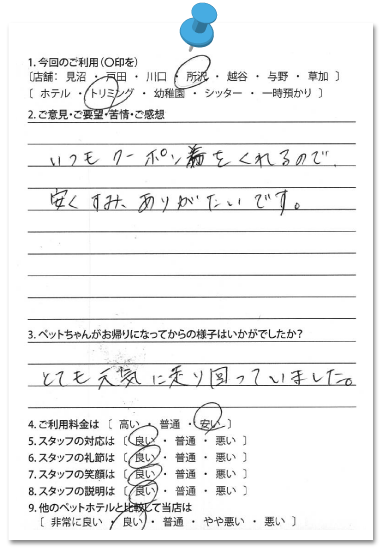 1. 今回のご利用(〇印を)
〔店舗: 見沼 ・ 戸田 ・ 川口 ・ 所沢 ・ 越谷 ・ 与野 ・ 草加 〕
〔 ホテル ・ トリミング ・ 幼稚園 ・ シッター ・ 一時預かり 〕
2. ご意見・ご要望・苦情・ご感想
いつもクーポン券をくれるので、
安くすみ、ありがたいです。
3. ペットちゃんがお帰りになってからの様子はいかがでしたか?
とても元気に走り回っていました。
4. ご利用料金は 〔 高い ・ 普通 ・ 安い 〕
5. スタッフの対応は 〔 良い ・ 普通 ・ 悪い 〕
6. スタッフの礼節は 〔 良い ・ 普通 ・ 悪い 〕
7. スタッフの笑顔は 〔 良い ・ 普通 ・ 悪い 〕
8. スタッフの説明は 〔 良い ・ 普通 ・ 悪い 〕
9. 他のペットホテルと比較して当店は
〔 非常に良い ・ 良い ・ 普通 ・ やや悪い ・ 悪い 〕